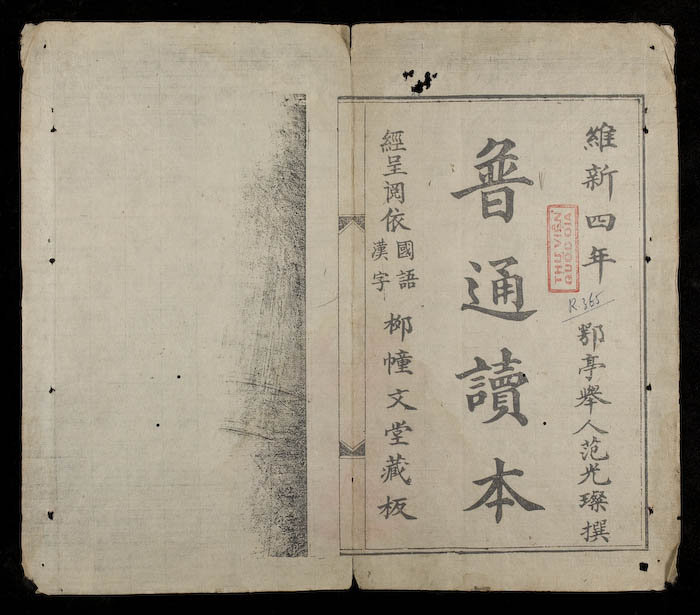 維新四年 鄂亭舉人范光璨撰
THƯ VIỆN
QUỐC GIA
R.365
普通讀本
經呈阅依國語漢字 柳幢文堂藏板